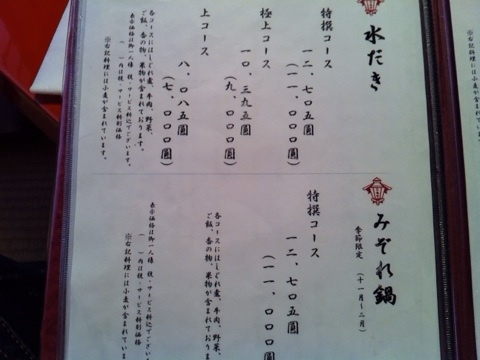 水だき
特撰コース
一二、七〇五圓
(一一、〇〇〇圓)
極上コース
一〇、三九五圓
(九、〇〇〇圓)
上コース
八、〇八五圓
(七、〇〇〇圓)
各コースにはしぐれ煮、牛肉、野菜、
ご飯、香の物、果物が含まれております。
表示価格は御一人様 税・サービス料込でございます。
( )内は税・サービス料別価格
※右記料理には小麦が含まれています。
みぞれ鍋
季節限定 (十一月〜二月)
特撰コース
一二、七〇五圓
(一一、〇〇〇圓
各コースにはしぐれ煮、牛肉、野菜、
ご飯、香の物、果物が含まれております
表示価格は御一人様 税・サービス料込でござい
( )内は税・サービス料別価格
※右記料理には小麦が含まれています